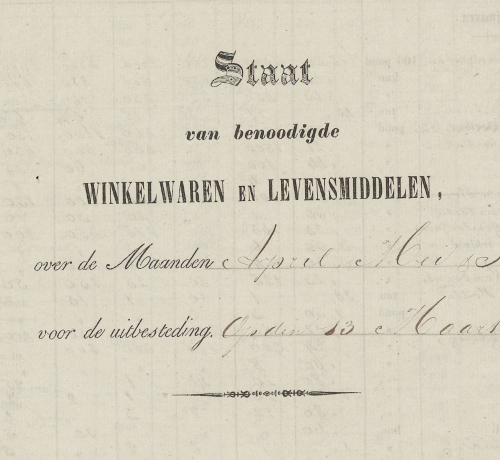 Staat
van benoodigde
WINKELWAREN EN LEVENSMIDDELEN,
over de Maanden April Mei
voor de uitbesteding. Op den 13 Maart